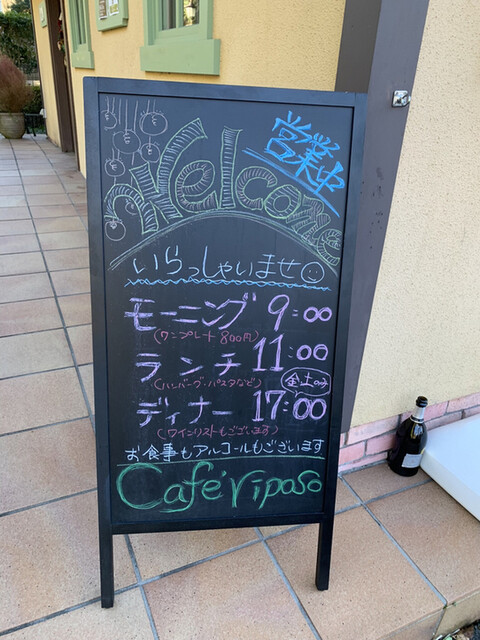 営業中
Welcome
いらっしゃいませ
モーニング 9:00
(ワンプレート 800円)
ランチ 11:00
(ハンバーグ・パスタなど)
金、土のみ
ディナー 17:00
(ワインリストもございます)
お食事もアルコールもございます
Café riposo